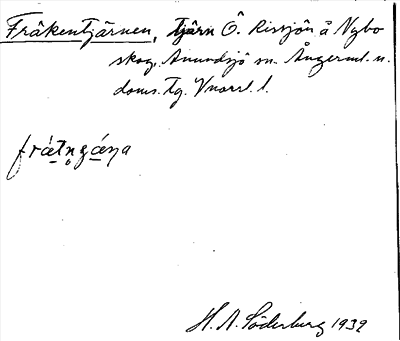 Fräkentjärnen, tjärn Ö. Rissjön å Nybo
skog, Anundsjö sn. Ångerml. n.
doms. Tg. Vnorrl. l.
frä́tn̥gä́ŋa
H. A. Söderberg 1932